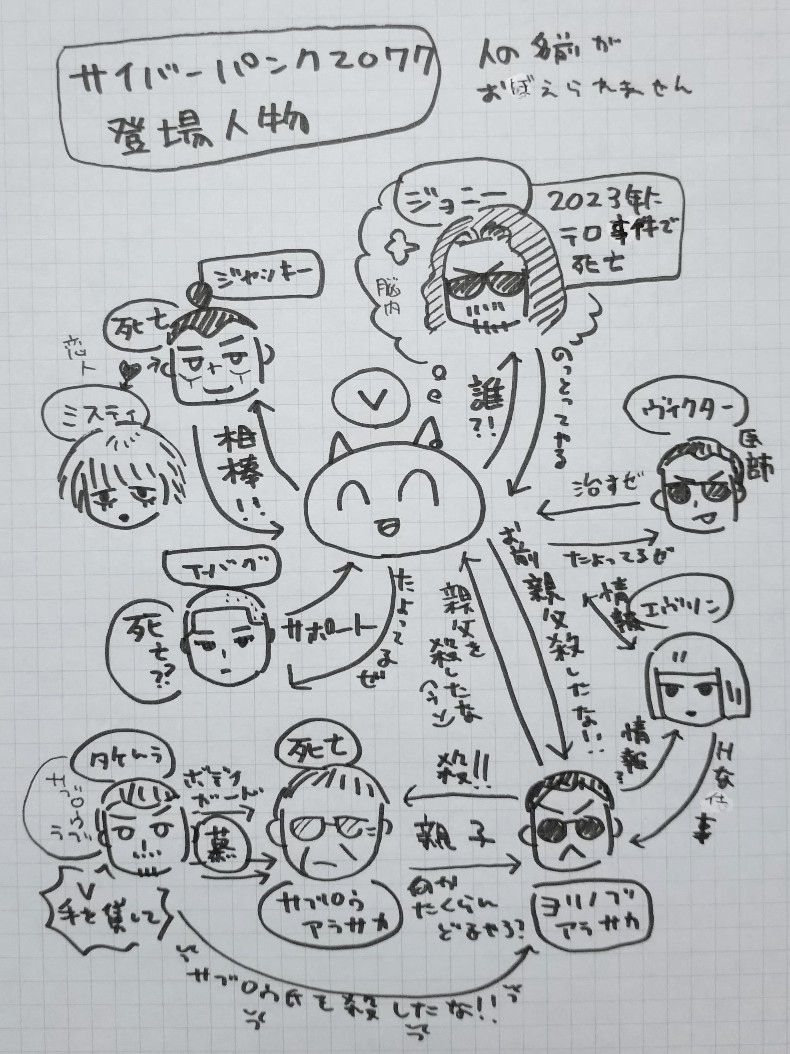 サイバーパンク2077
登場人物
人の名前が
おぼえられません
ジョニー
2023年に
テロ事件で
死亡
脳内
ジャッキー
死亡
恋人
ミスティ
相棒!!
V
誰?!
のっとってやる
ヴィクター
医師
治すぜ
たよってるぜ
T-バグ
死亡??
サポート
たよってるぜ
親父を
殺したな
お前
親父殺したな!!
情報
エヴリン
情報
Hな仕事
タケムラ
サブロウの
ボディ
ガード
慕
V
手を貸して
死亡
殺!!
親子
サブロウ
アラサカ
何か
たくらん
どるやろ?
ヨリノブ
アラサカ
サブロウ氏を殺したな!!